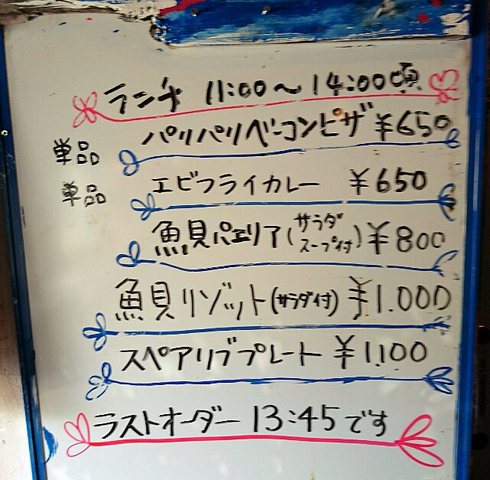 ランチ 11:00～14:00頃
単品 パリパリベーコンピザ ¥650
単品 エビフライカレー ¥650
魚貝パエリア(サラダスープ付) ¥800
魚貝リゾット(サラダ付) ¥1.000
スペアリブプレート ¥1100
ラストオーダー 13:45です